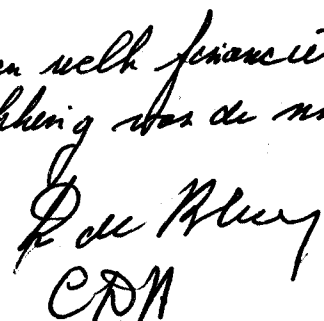 en welk financië
kking was de
R de
CDA